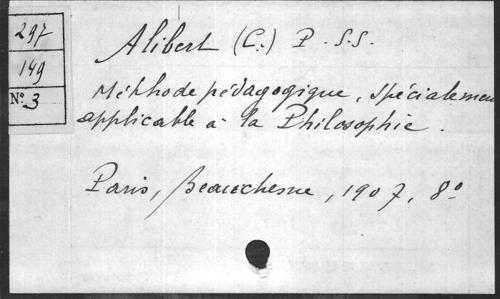 297
149
N:º 3
Alibert (C.) P.S.S.
Méthode pédagogique, spécialemen
applicable à la Philosophie.
Paris, Beauchesne, 1907, 8º